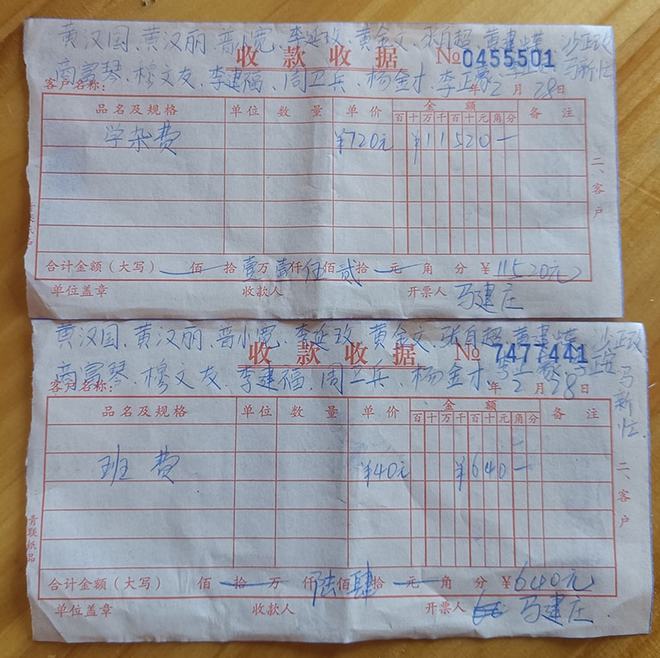 黄汉国、黄汉丽、普小宽、李延玫、黄金文、张自超、黄建 沙正政
收款收据 №0455501
商富琴、穆文友、李建福、周卫兵、杨金才、李正 马新
客户名称： 年2月28日
品名及规格 单位 数量 单价 金额 备注
百十万千百十元角分
学杂费 ¥720元 ¥11520一
二、客户
合计金额（大写） 佰 拾壹万壹仟伍佰贰拾 元 角 分 ¥11520元
单位盖章 收款人 开票人 马建庄
黄汉国、黄汉丽、普小宽、李延玫、黄金文、张自超、黄建 沙正政
收款收据 № 7477441
商富琴、穆文友、李建福、周卫兵、杨金才、李正 马新
客户名称： 2月28日
品名及规格 单位 数量 单价 金额 备注
百十万千百十元角分
班费 ¥40元 ¥640一
二、客户
青联纸品
合计金额（大写） 佰 拾 万 仟陆佰肆拾 元 角 分 ¥640元
单位盖章 收款人 开票人 马建庄